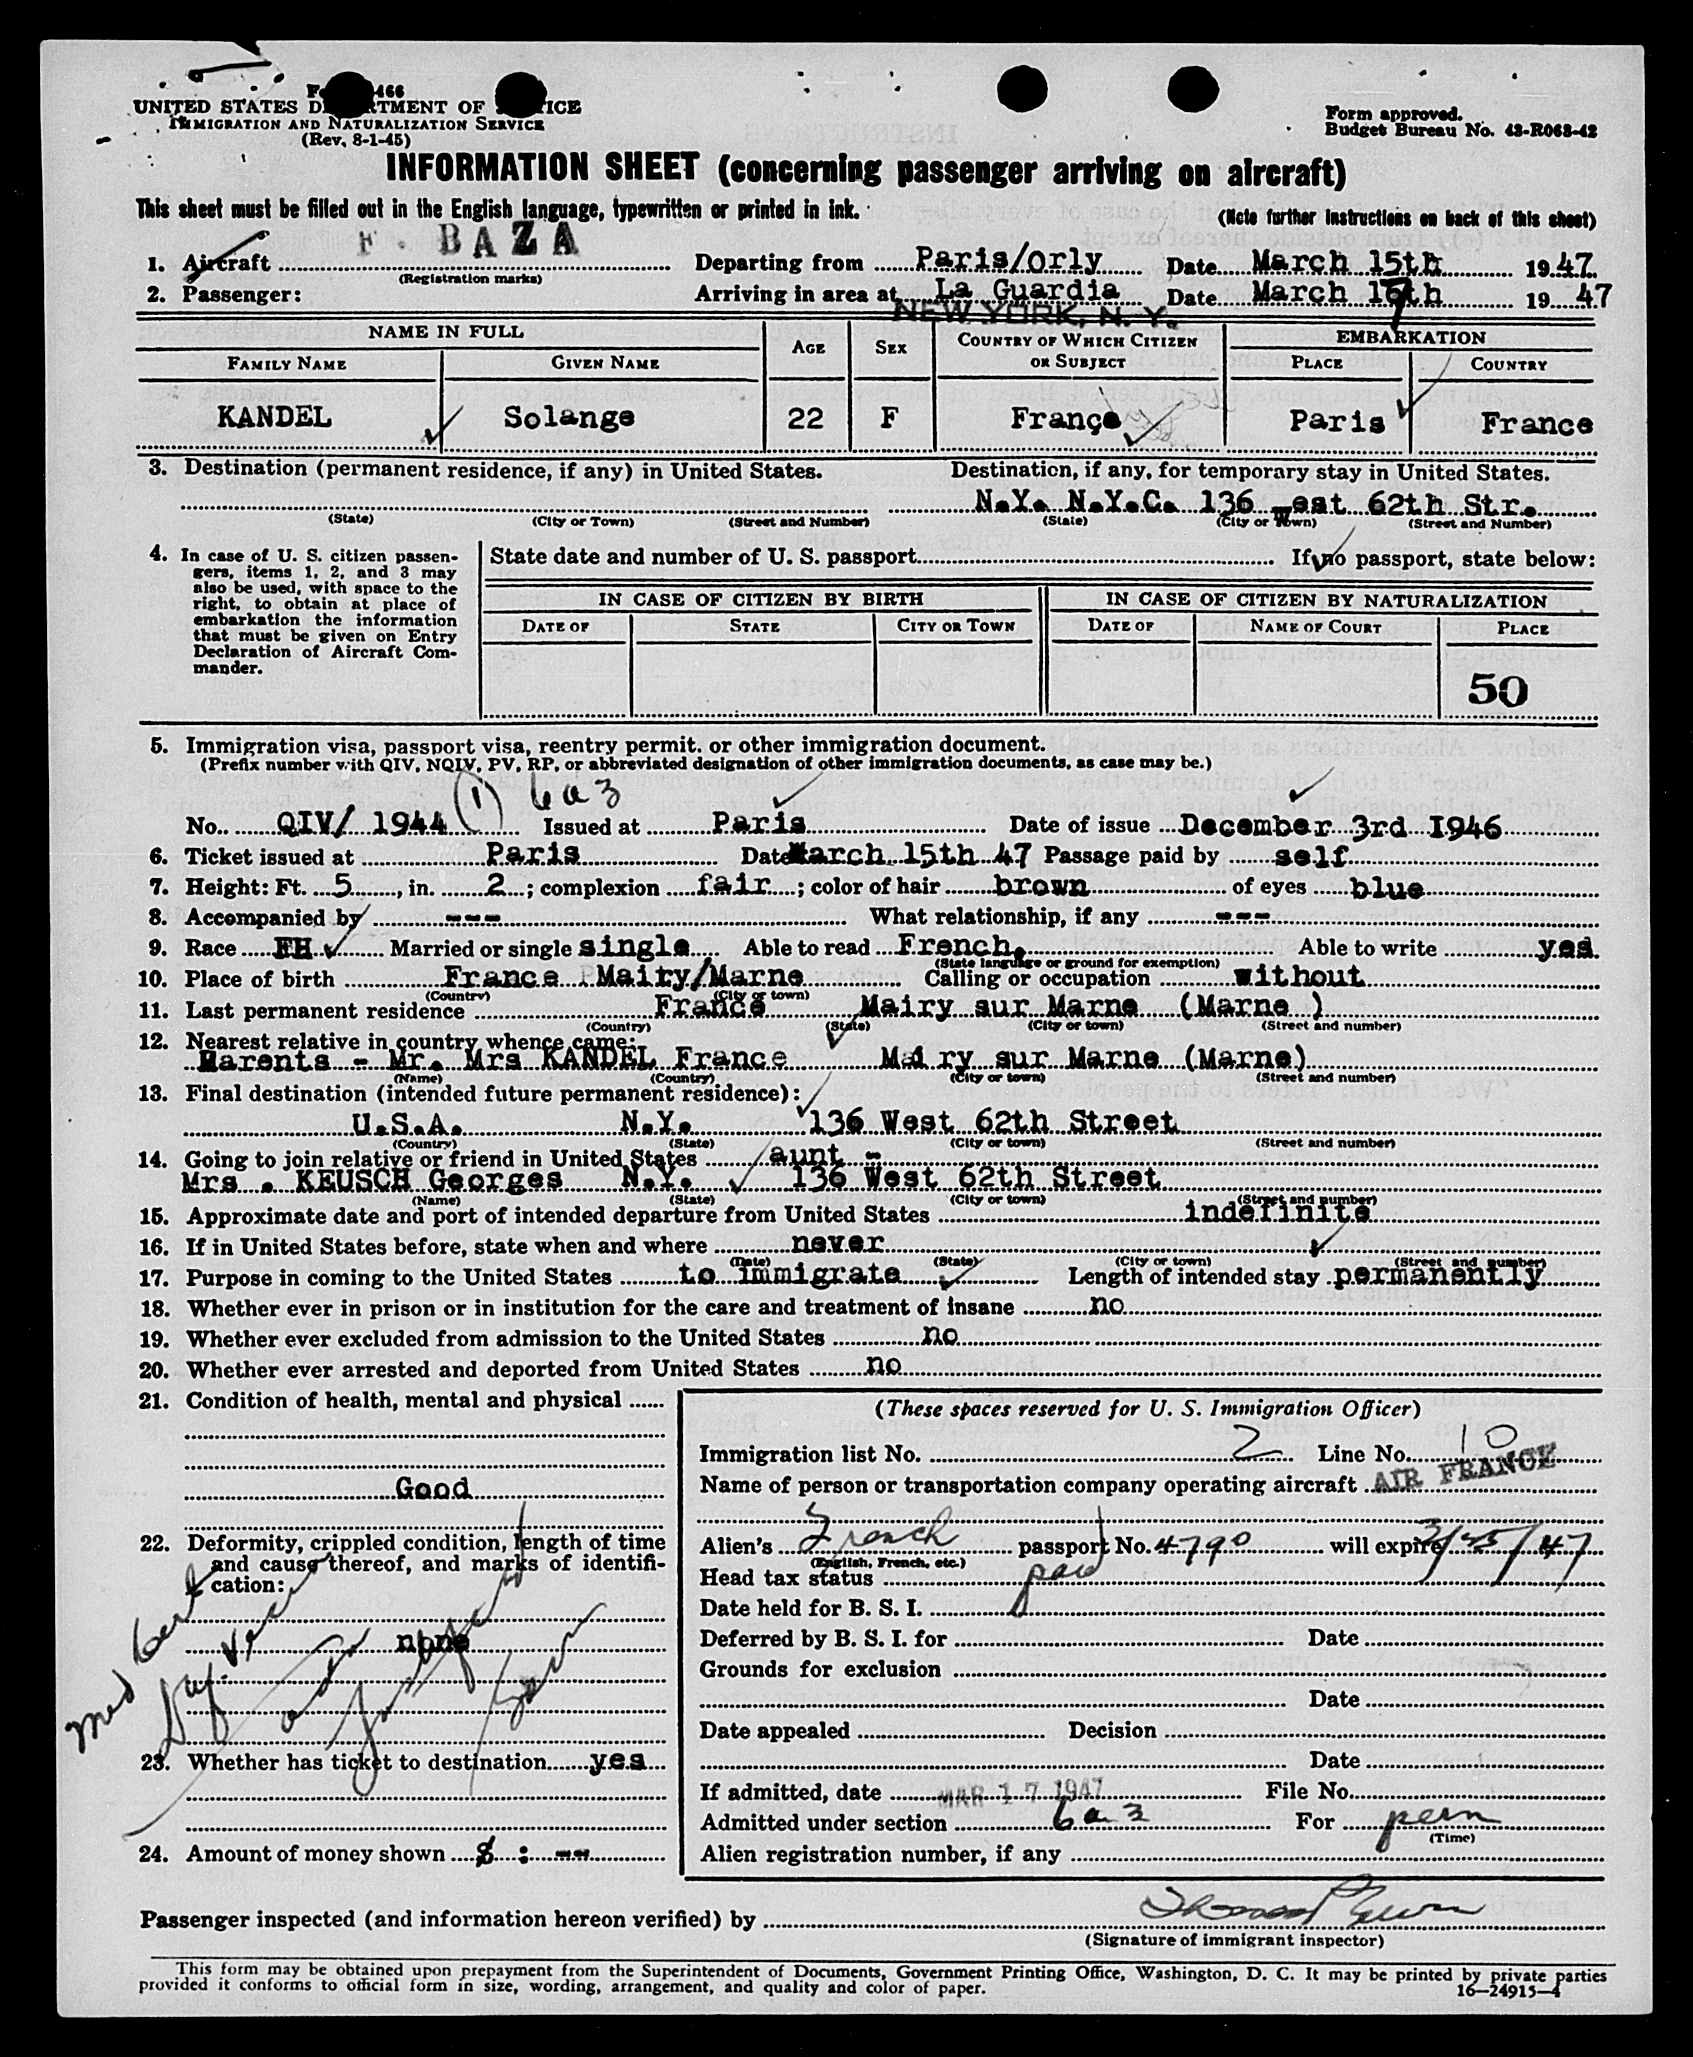 466
UNITED STATES D TMENT OF ICE
IMMIGRATION AND NATURALIZATION SERVICE
(Rev. 8-1-45)
Form approved.
Budget Bureau No. 43-R068-42
INFORMATION SHEET (concerning passenger arriving on aircraft)
This sheet must be filled out in the English language, typewritten or printed in ink.
(Note further instructions on back of this sheet)
F. BAZA
1. Aircraft Departing from Paris/Orly Date March 15th 1947
(Registration marks)
2. Passenger: Arriving in area at La Guardia Date March 17th 19 47
NEW YORK, N. Y.
NAME IN FULL AGE SEX COUNTRY OF WHICH CITIZEN OR SUBJECT EMBARKATION
FAMILY NAME GIVEN NAME PLACE COUNTRY
KANDEL Solange 22 F France Paris France
3. Destination (permanent residence, if any) in United States. Destination, if any, for temporary stay in United States.
N.Y. N.Y.C. 136 West 62th Str.
(State) (City or Town) (Street and Number) (State) (City or Town) (Street and Number)
4. In case of U. S. citizen passen-
gers, items 1, 2, and 3 may
also be used, with space to the
right, to obtain at place of
embarkation the information
that must be given on Entry
Declaration of Aircraft Com-
mander.
State date and number of U. S. passport If no passport, state below:
IN CASE OF CITIZEN BY BIRTH IN CASE OF CITIZEN BY NATURALIZATION
DATE OF STATE CITY OR TOWN DATE OF NAME OF COURT PLACE
50
5. Immigration visa, passport visa, reentry permit. or other immigration document.
(Prefix number with QIV, NQIV, PV, RP, or abbreviated designation of other immigration documents, as case may be.)
(1) 6a3
No. QIV/ 1944 Issued at Paris Date of issue December 3rd 1946
6. Ticket issued at Paris Date March 15th 47 Passage paid by self
7. Height: Ft. 5, in. 2; complexion fair; color of hair brown of eyes blue
8. Accompanied by --- What relationship, if any ---
9. Race FH Married or single single Able to read French, Able to write yes.
(State language or ground for exemption)
10. Place of birth France Mairy/Marne Calling or occupation without
(Country) (City or town)
11. Last permanent residence France Mairy sur Marne (Marne )
(Country) (State) (City or town) (Street and number)
12. Nearest relative in country whence came:
Parents - Mr. Mrs KANDEL France Mairy sur Marne (Marne)
(Name) (Country) (City or town) (Street and number)
13. Final destination (intended future permanent residence):
U.S.A. N.Y. 136 West 62th Street
(Country) (State) (City or town) (Street and number)
14. Going to join relative or friend in United States aunt -
Mrs . KEUSCH Georges N.Y. 136 West 62th Street
(Name) (State) (City or town) (Street and number)
15. Approximate date and port of intended departure from United States indefinite
16. If in United States before, state when and where never
(Date) (State) (City or town) (Street and number)
17. Purpose in coming to the United States to immigrate Length of intended stay permanently
18. Whether ever in prison or in institution for the care and treatment of insane no
19. Whether ever excluded from admission to the United States no
20. Whether ever arrested and deported from United States no
21. Condition of health, mental and physical
Good
22. Deformity, crippled condition, length of time
and cause thereof, and marks of identifi-
cation:
none
Med Cert
23. Whether has ticket to destination yes
24. Amount of money shown $ : --
(These spaces reserved for U. S. Immigration Officer)
Immigration list No. 2 Line No. 10
Name of person or transportation company operating aircraft AIR FRANCE
Alien's French passport No. 4790 will expire 3/25/47
(English, French, etc.)
Head tax status paid
Date held for B. S. I.
Deferred by B. S. I. for Date
Grounds for exclusion
Date
Date appealed Decision
Date
If admitted, date MAR 17 1947 File No.
Admitted under section 6a3 For perm
(Time)
Alien registration number, if any
Passenger inspected (and information hereon verified) by
(Signature of immigrant inspector)
This form may be obtained upon prepayment from the Superintendent of Documents, Government Printing Office, Washington, D. C. It may be printed by private parties
provided it conforms to official form in size, wording, arrangement, and quality and color of paper.
16—24915-4